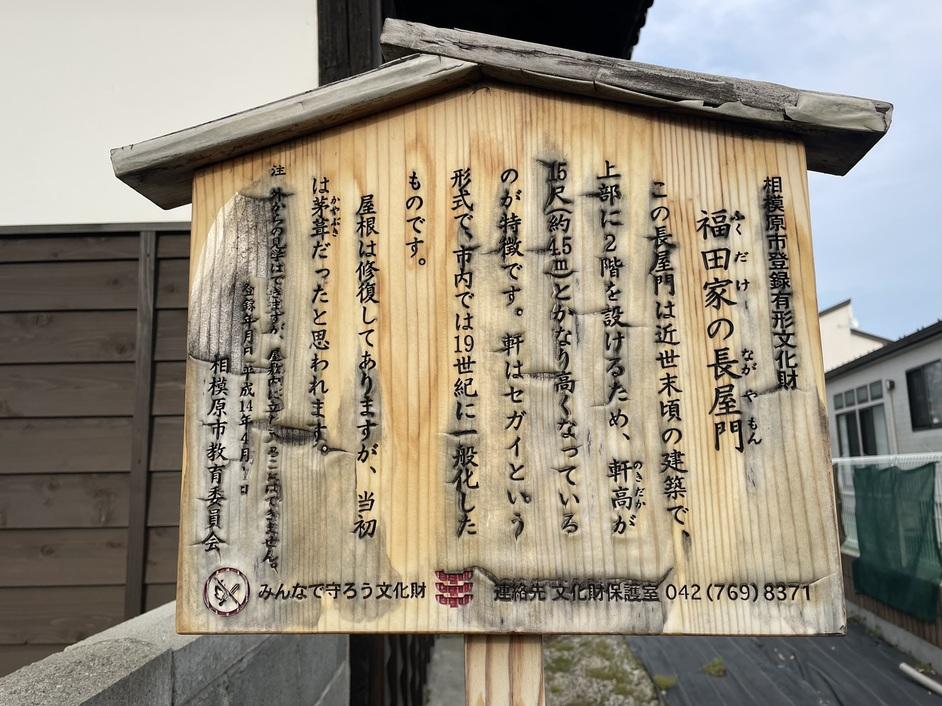 相模原市登録有形文化財
福田家の長屋門
ふくだけ ながやもん
この長屋門は近世末頃の建築で、
上部に2階を設けるため、軒高が
のきだか
15尺(約4.5m)とかなり高くなっている
のが特徴です。軒はセガイという
形式で、市内では19世紀に一般化した
ものです。
屋根は修復してありますが、当初
は茅葺だったと思われます。
かやぶき
注 外からの見学はできますが、屋敷内に立ち入ることはできません。
登録年月日 平成14年4月1日
相模原市教育委員会
みんなで守ろう文化財
連絡先 文化財保護室 042(769)8371